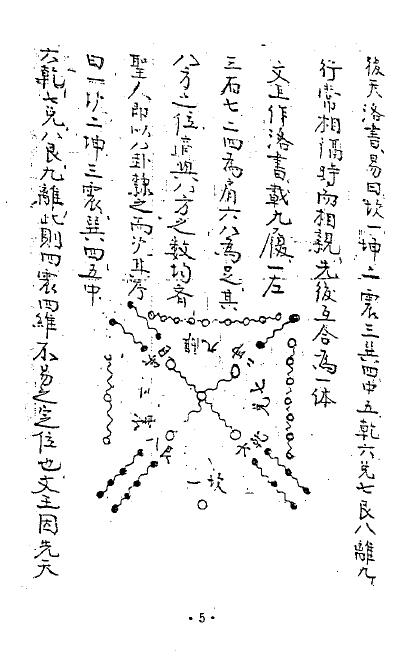 後天洛書易曰坎一坤二震三巽四中五乾六兌七艮八離九
行常相隔時而相親先後互合為一体
文王作洛書載九履一左
三右七二四為肩六八為足其
八方之位適與八方之數均齊
聖人即以八卦隸之而
曰一坎二坤三震巽四五中
六乾七兌八艮九離此則四震四維不易之定位也文王因先天
一坎
·5·